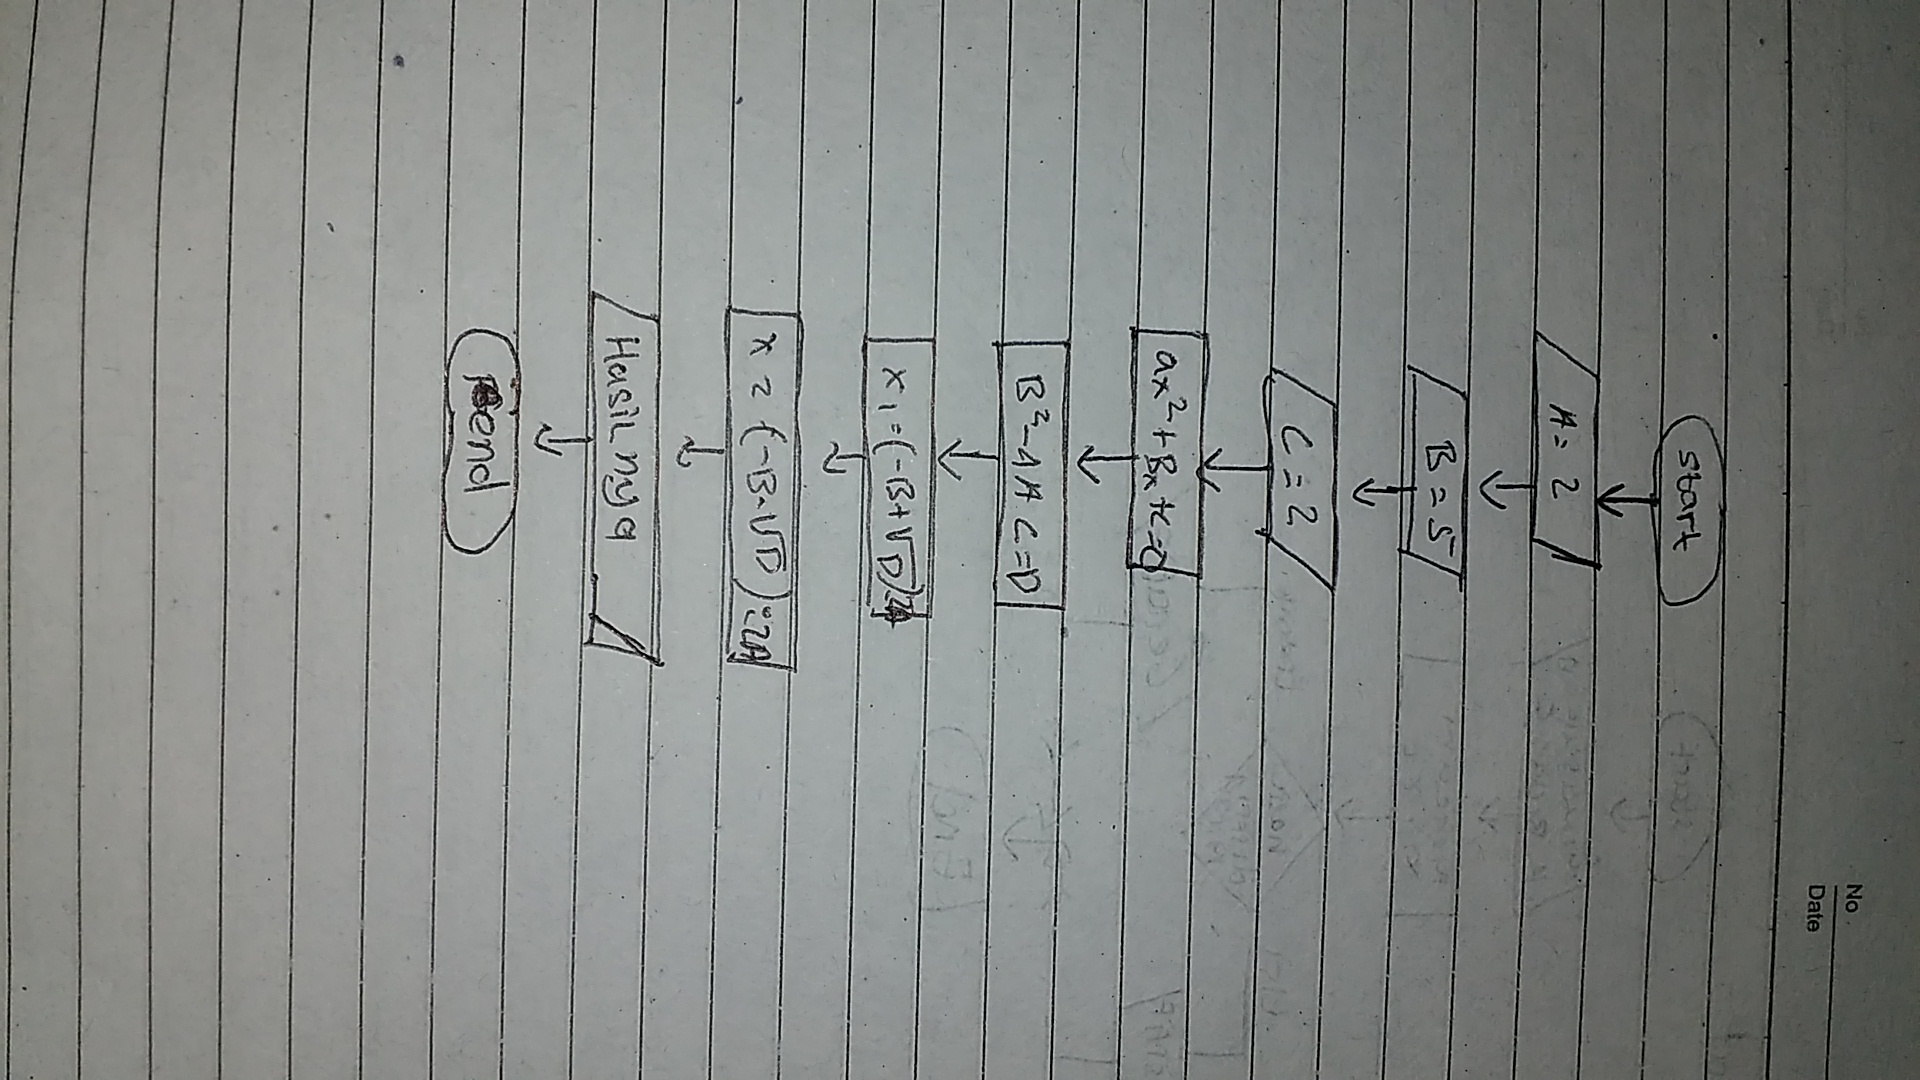 No
Date
start
A = 2
B = 5
C = 2
ax²+Bx+c=0
B²-4AC=D
x1=(-B+√D):2A
x2=(-B-√D):2A
Hasilnya
end